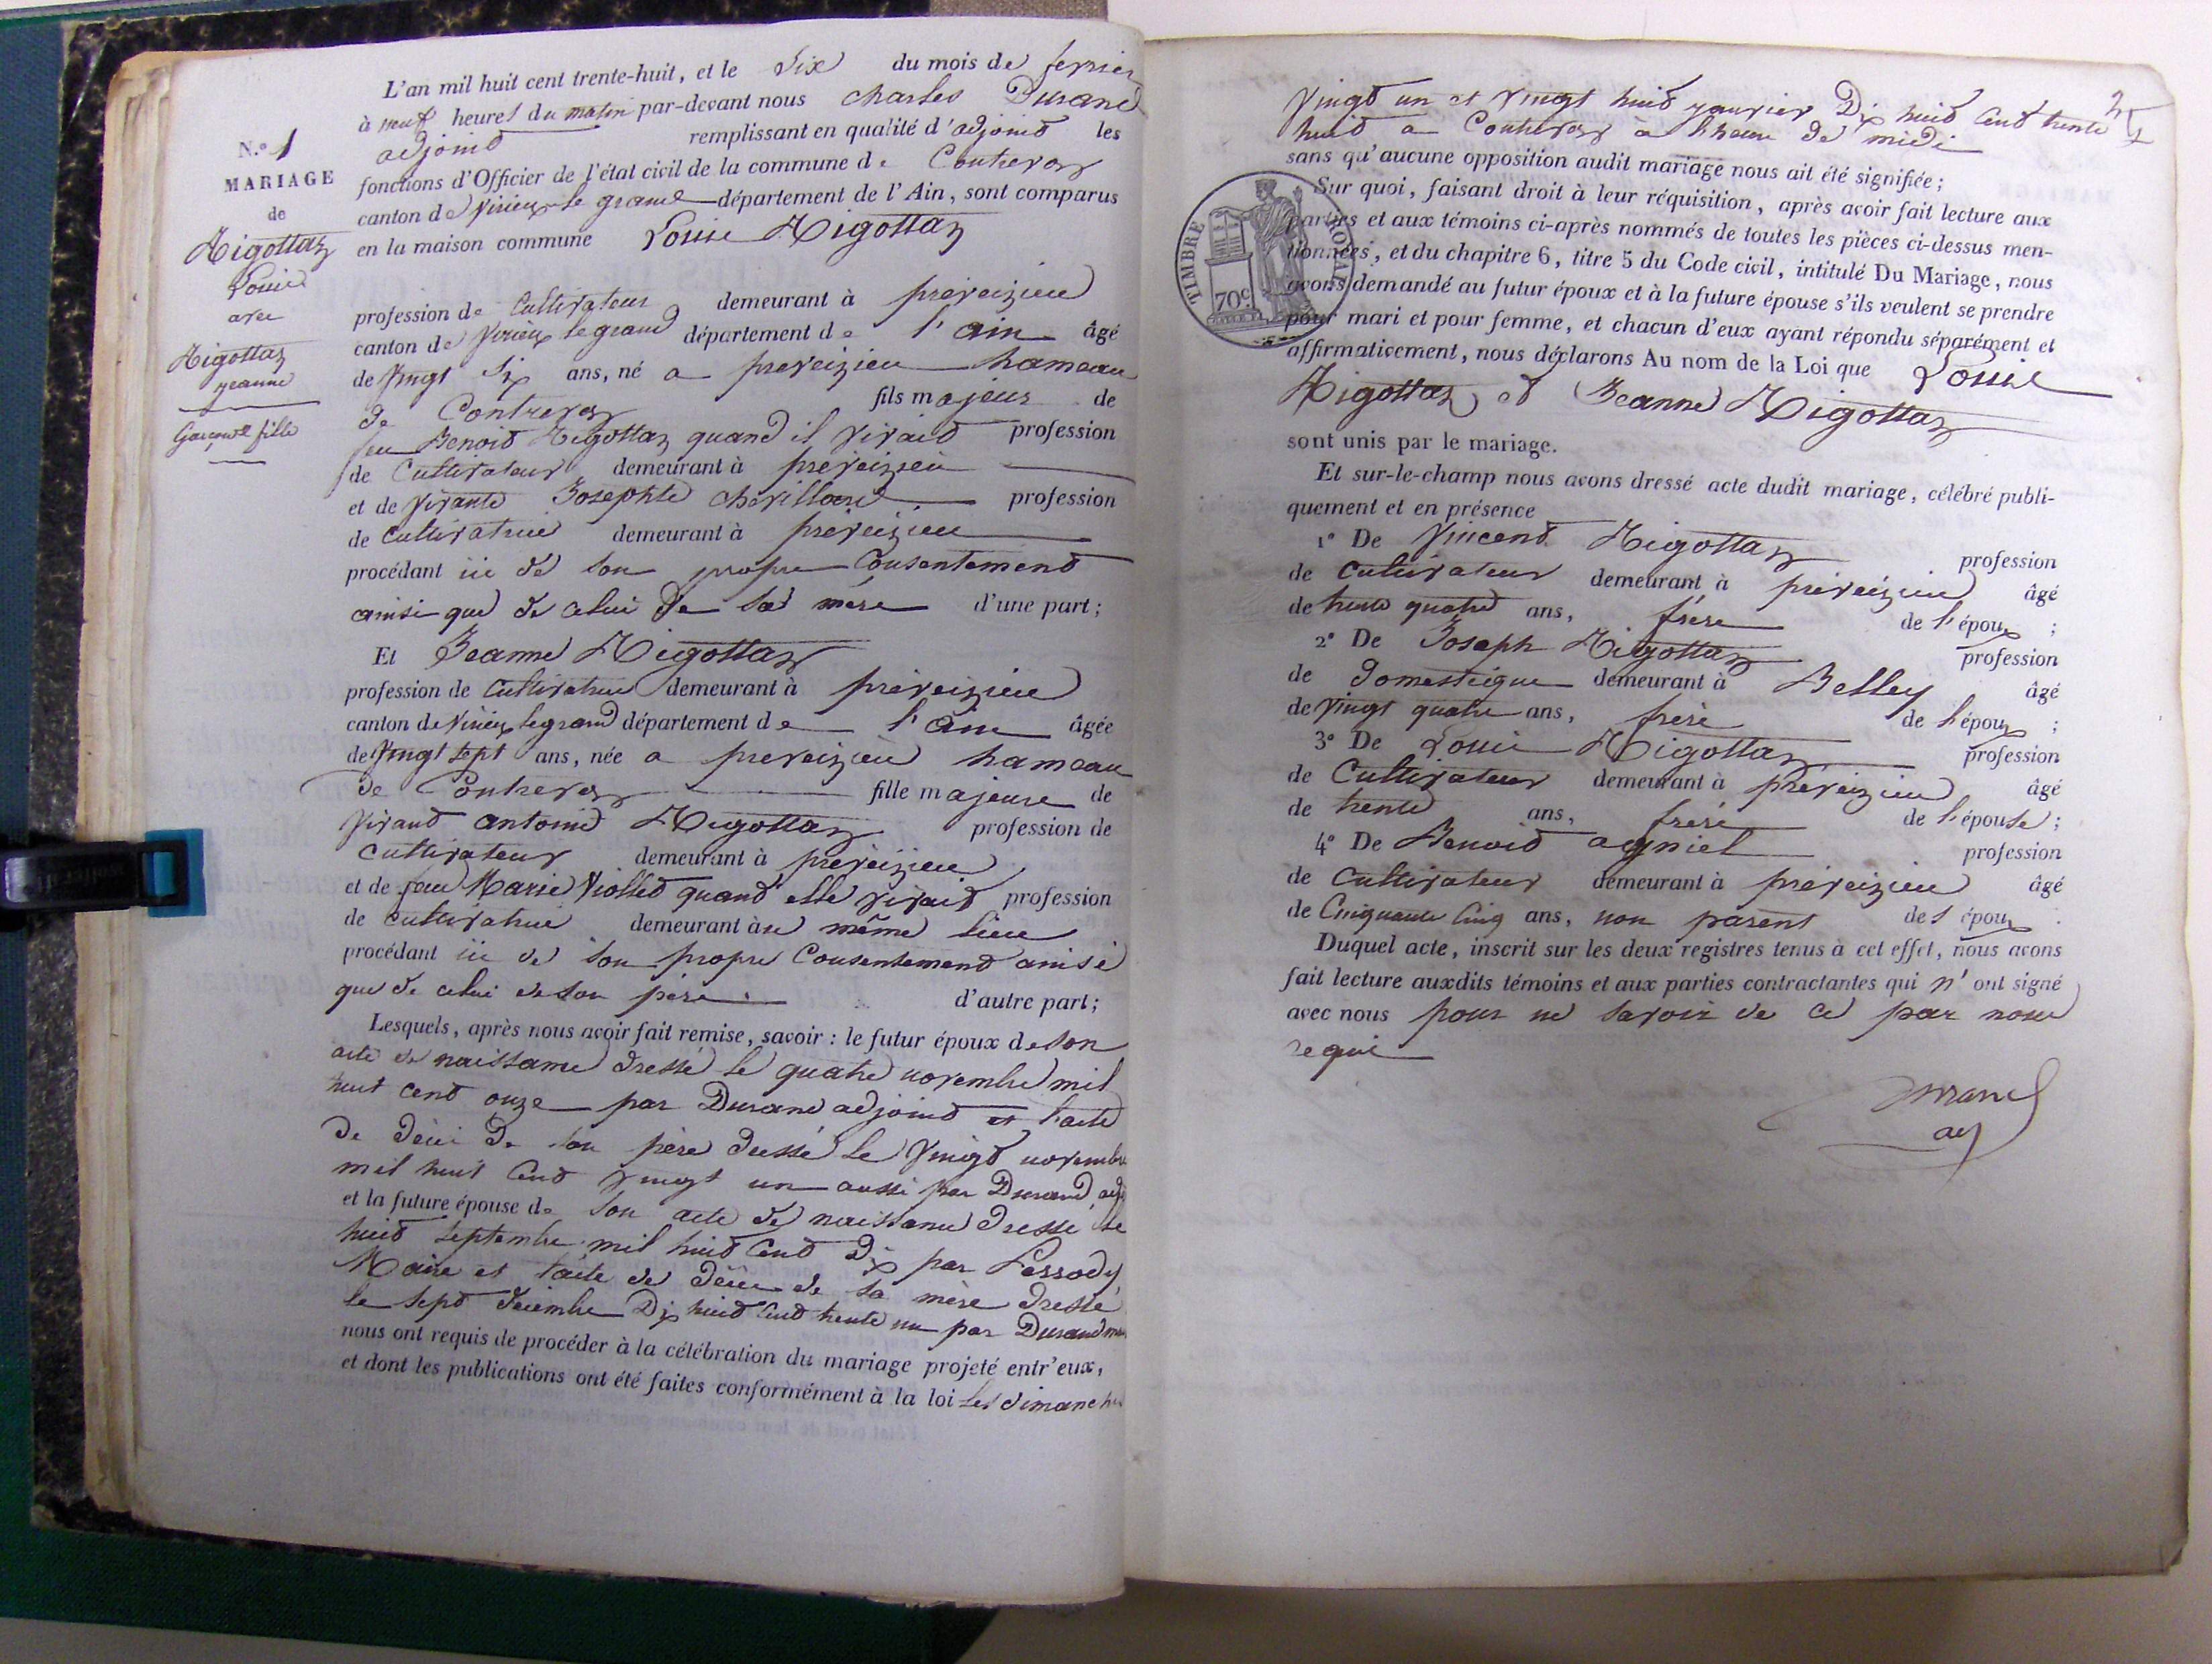 L'an mil huit cent trente-huit, et le six du mois de fevrier
à neuf heures du matin par-devant nous Charles Durand
adjoind remplissant en qualité d'adjoind les
fonctions d'Officier de l'état civil de la commune de Contrevoz
canton de Virieux le grand département de l'Ain, sont comparus
en la maison commune Louis Rigottaz
N.º 1
MARIAGE
de
Rigottaz
Louis
avec
Rigottaz
jeanne
Garçon et fille
profession de Cultivateur demeurant à preveizieu
canton de Virieux le grand département de l'ain âgé
de vingt six ans, né a preveizieu hameau
de Contrevoz fils majeur de
feu Benoid Rigottaz quand il vivaid profession
de Cultivateur demeurant à preveizieu
et de vivante Josephte Chavilland profession
de Cultivatrice demeurant à preveizieu
procédant ici de son propre Consentemend
ainsi que de celui de sa mère d'une part ;
Et Jeanne Rigottaz
profession de Cultivatrice demeurant à preveizieu
canton de Virieux le grand département de l'ain âgée
de vingt sept ans, née a preveizieu hameau
de Contrevoz fille majeure de
vivand antoine Rigottaz profession de
Cultivateur demeurant à preveizieu
et de feu Marie Viollet quand elle vivaid profession
de cultivatrice demeurant au même lieu
procédant ici de son propre Consentemend ainsi
que de celui de son père d'autre part ;
Lesquels, après nous avoir fait remise, savoir : le futur époux de son
acte de naissance dressé le quatre novembre mil
huit cend onze par Durand adjoind et l'acte
de décé de son père dressé le vingd novembre
mil huit Cend vingt un aussi par Durand adj
et la future épouse de son acte de naissance dressé le
huid septembre mil huid Cend dix par
Maire et l'acte de décée de sa mère dressé
le sepd decembre Dix huid Cend trente un par Durand
nous ont requis de procéder à la célébration du mariage projeté entr'eux,
et dont les publications ont été faites conformément à la loi les dimanches
vingd un et vingt huid janvier Dix huid Cend trente
huid a Contrevoz à l'heure de midi
sans qu'aucune opposition audit mariage nous ait été signifiée ;
Sur quoi, faisant droit à leur réquisition, après avoir fait lecture aux
parties et aux témoins ci-après nommés de toutes les pièces ci-dessus men-
tionnées, et du chapitre 6, titre 5 du Code civil, intitulé Du Mariage, nous
avons demandé au futur époux et à la future épouse s'ils veulent se prendre
pour mari et pour femme, et chacun d'eux ayant répondu séparément et
affirmativement, nous déclarons Au nom de la Loi que Louis
Rigottaz et Jeanne Rigottaz
TIMBRE ROYAL
70c
sont unis par le mariage.
Et sur-le-champ nous avons dressé acte dudit mariage, célébré publi-
quement et en présence
1º De Vincend Rigottaz profession
de cultivateur demeurant à préveizieu âgé
de trente quatre ans, frère de l'époux ;
2º De Joseph Rigottaz profession
de domestique demeurant à Belley âgé
de vingt quatre ans, frère de l'époux ;
3º De Louis Rigottaz profession
de Cultivateur demeurant à préveizieu âgé
de trente ans, frère de l'épouse ;
4º De Benoid agniel profession
de Cultivateur demeurant à préveizieu âgé
de Cinquante Cinq ans, non parent des époux.
Duquel acte, inscrit sur les deux registres tenus à cet effet, nous avons
fait lecture auxdits témoins et aux parties contractantes qui n'ont signé
avec nous pour ne savoir de ce par nous
requi
Durand
adj